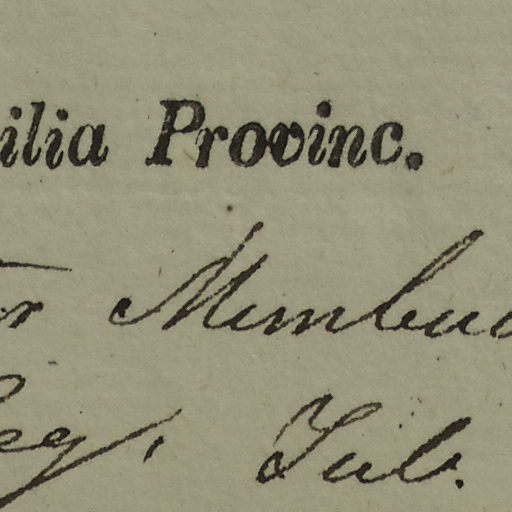 ilia Provinc.
r Membud
eg. Jub.